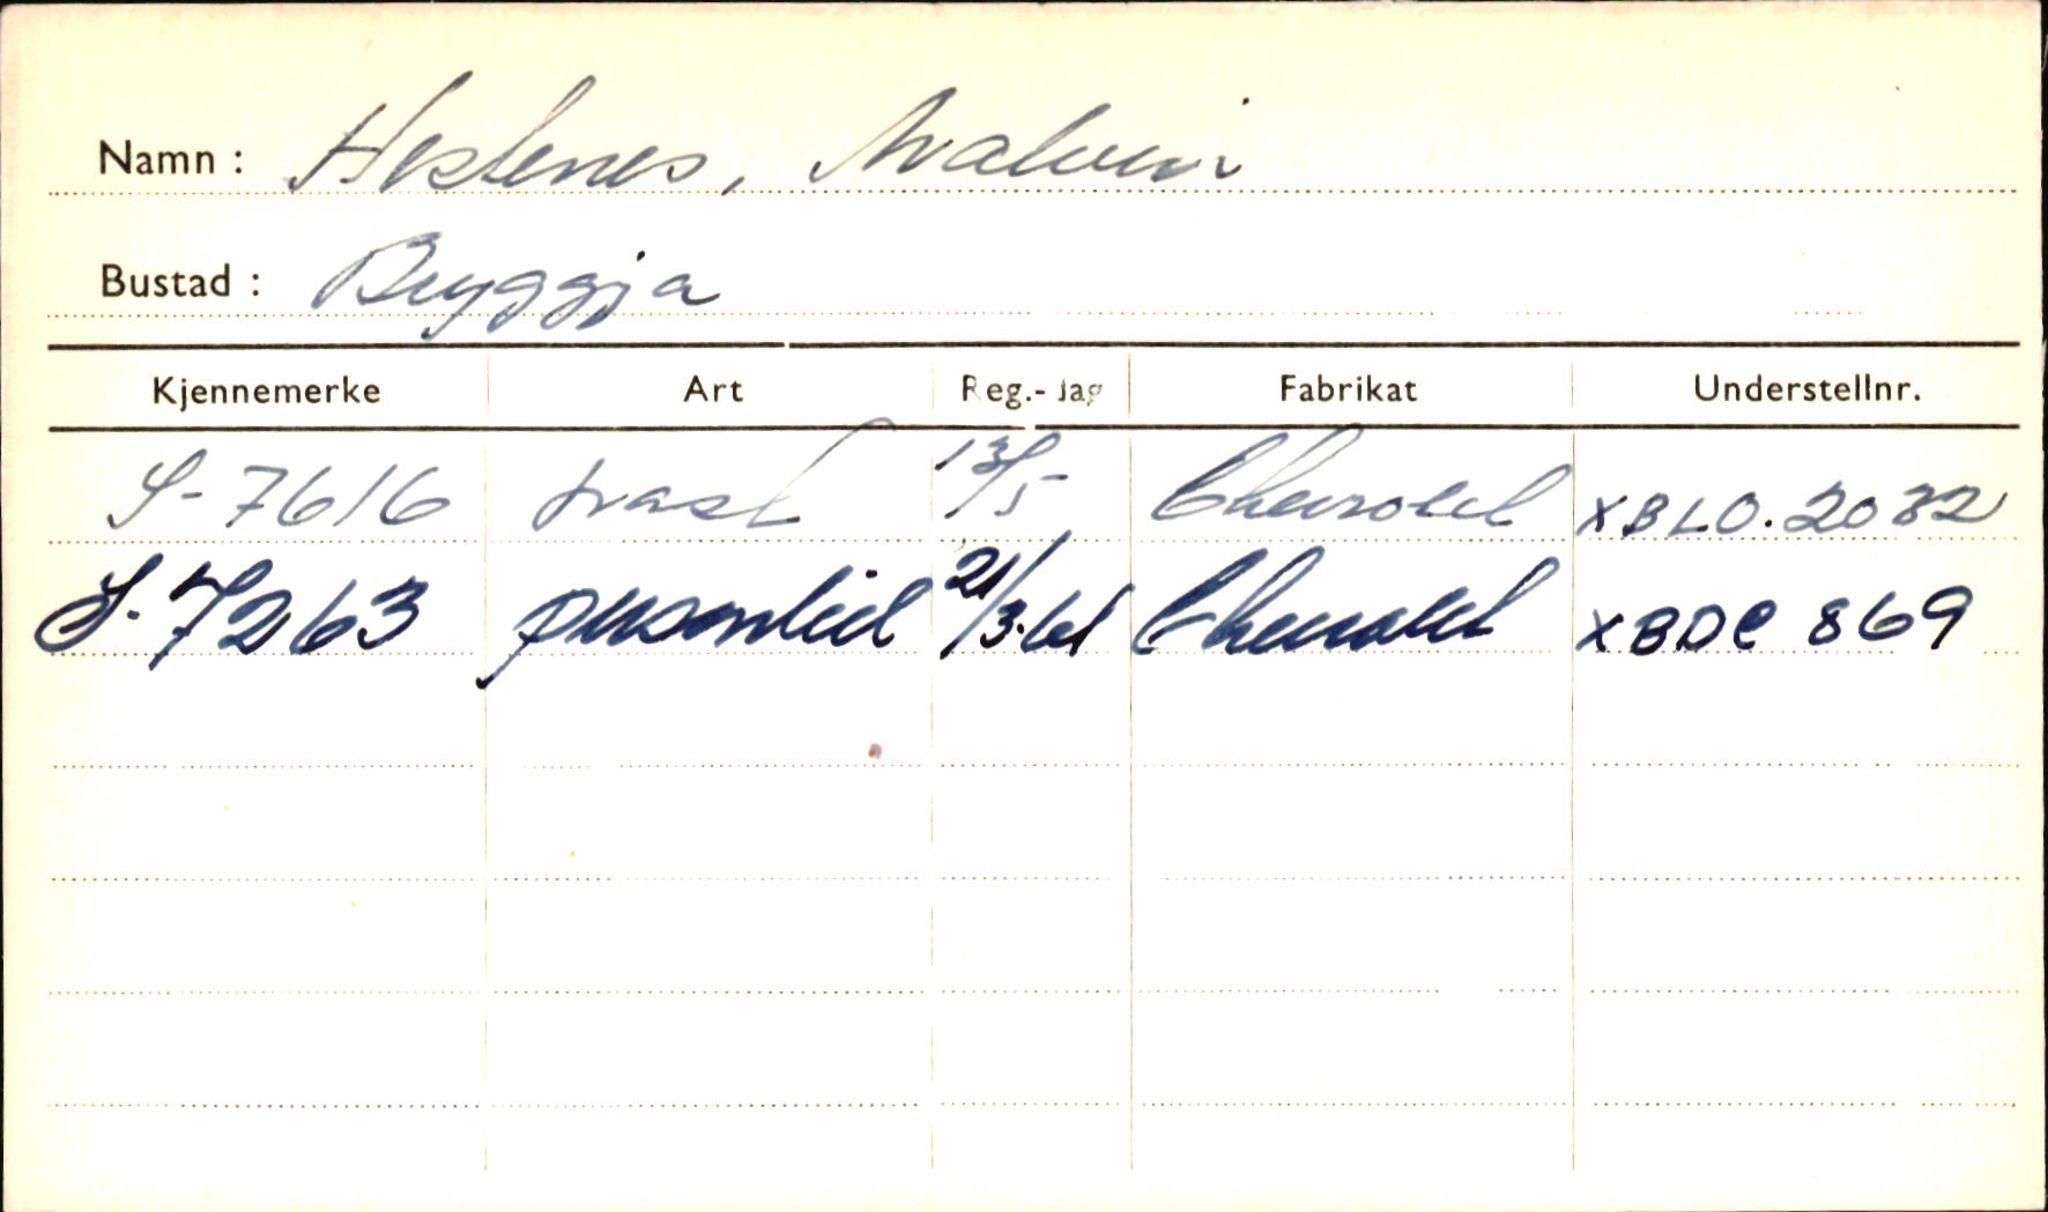 Namn : Hestenes, Malvin
Bustad : Bryggja
Kjennemerke Art Reg.- dag Fabrikat Understellnr.
S- 7616 13/5 Chevrolet XBLO. 2032
S- 7263 personbil 21/3.61 Chevrolet XBDC 869